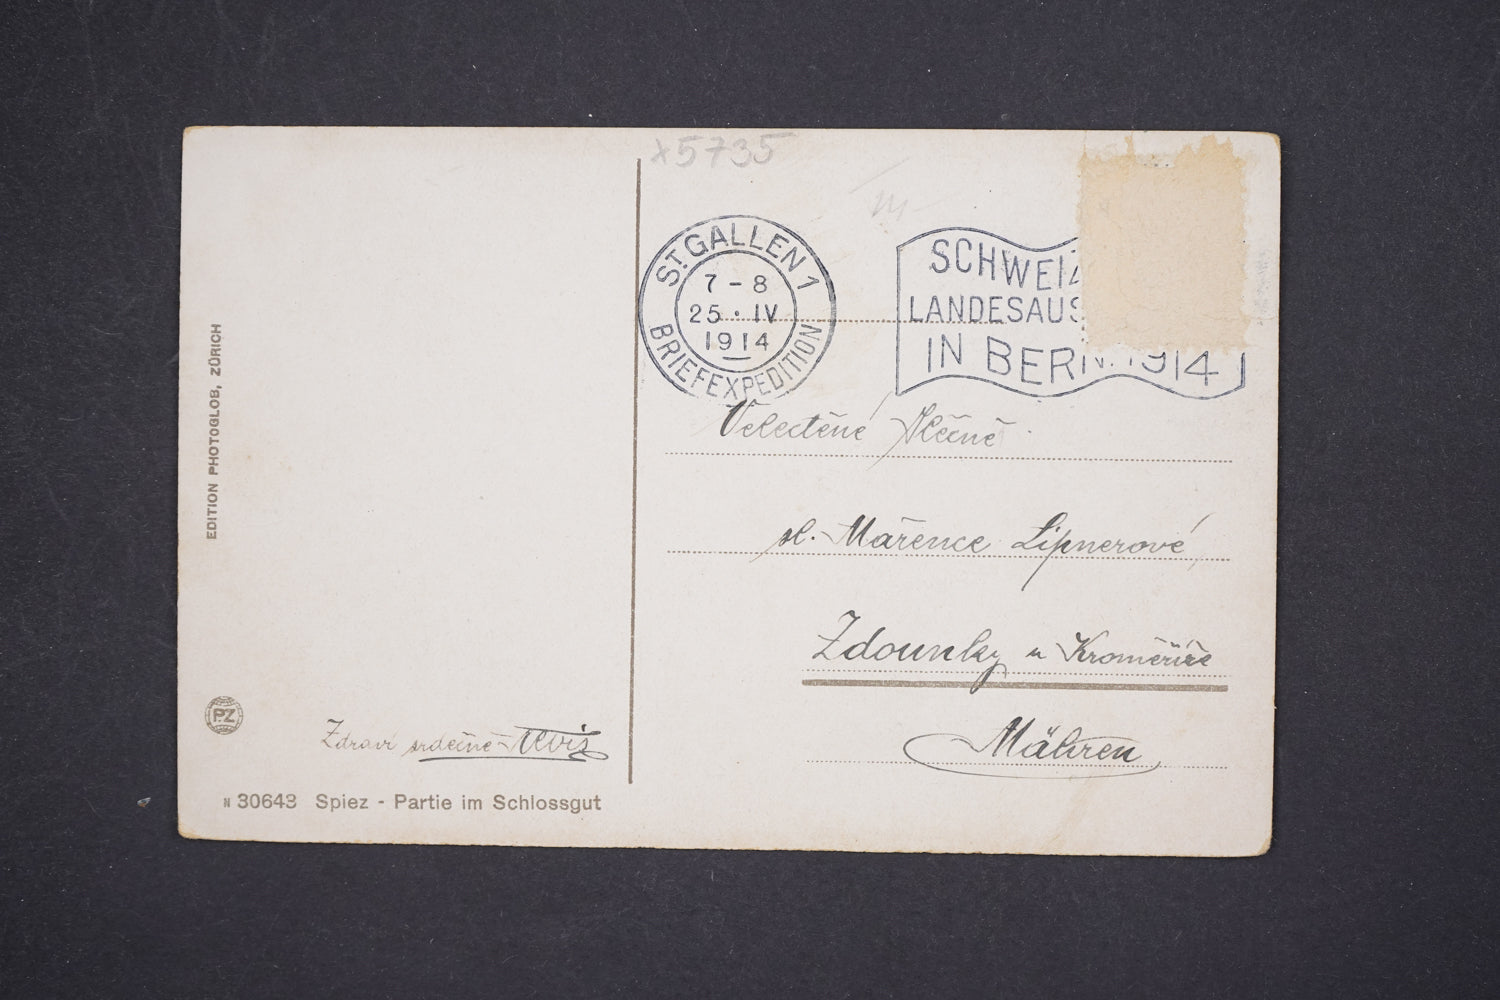 x5735
ST. GALLEN 1
7 - 8
25 · IV
1914
BRIEFEXPEDITION
SCHWEIZ
LANDESAUS
IN BERN. 1914
Velectěné Slečně
sl. Mařence Lipnerové,
Zdounky u Kroměříže
Mähren
EDITION PHOTOGLOB, ZÜRICH
PZ
Zdraví srdečně
N 30643 Spiez - Partie im Schlossgut